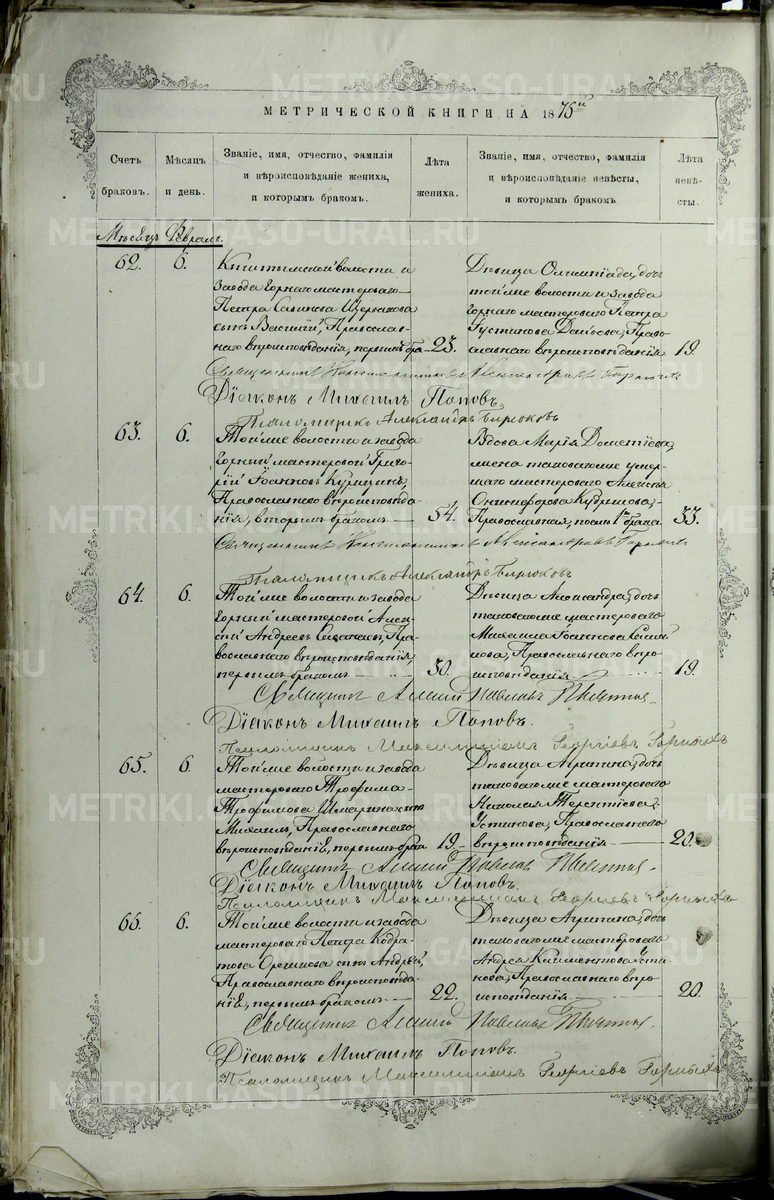 МЕТРИЧЕСКОЙ КНИГИ НА 1875й
Счетъ браковъ.
Мѣсяцъ и день.
Званіе, имя, отчество, фамилія и вѣроисповѣданіе жениха, и которымъ бракомъ.
Лѣта жениха.
Званіе, имя, отчество, фамилія и вѣроисповѣданіе невѣсты, и которымъ бракомъ
Лѣта невѣсты.
Мѣсяцъ Февраль.
62. 6.
Кыштымской волости и
завода горнаго мастероваго
Петра Савинова Щербакова
сынъ Василій, Православ-
наго вѣроисповѣданія, первымъ бра 23.
Дѣвица Олимпіада, дочь
той же волости и завода
горнаго мастероваго Петра
Густинова, Право-
славнаго вѣроисповѣданія 19.
Священникъ Константинъ Александровъ
Діаконъ Михаилъ Поповъ.
Псаломщикъ Александръ Бирюковъ
63. 6.
Той же волости и завода
Горный мастеровой Григо-
рій Іоанновъ Курицынъ,
Православнаго вѣроисповѣда-
нія, вторымъ бракомъ 54.
Вдова Марія Дометіева,
жена таковаго же умер-
шаго мастероваго Алексѣя
Онисифорова
Православная, послѣ 1го брака 33.
Священникъ Константинъ Александровъ
Псаломщикъ Александръ Бирюковъ
64. 6.
Той же волости и завода
Горный мастеровой Алек-
сѣй Андреевъ Пра-
вославнаго вѣроисповѣданія,
первымъ бракомъ 30.
Дѣвица Александра, дочь
таковаго же мастероваго
Михаила Іоаннова
Православнаго вѣро-
исповѣданія 19.
Священникъ Алексій Павловъ
Діаконъ Михаилъ Поповъ.
Псаломщикъ Максимиліанъ Георгіевъ Горныхъ
65. 6.
Той же волости и завода
мастероваго Трофима
Трофимова сынъ
Михаилъ, Православнаго
вѣроисповѣданіе, первымъ брак 19
Дѣвица Агрипина, дочь
таковаго же мастероваго
Николая Терентіева
Устинова, Православнаго
вѣроисповѣданія 20.
Священникъ Алексій Павловъ
Діаконъ Михаилъ Поповъ.
Псаломщикъ Максимиліанъ Георгіевъ Горныхъ
66. 6.
Той же волости и завода
мастероваго Петра Кодра-
това сынъ Андрей,
Православнаго вѣроисповѣда-
ніе, первымъ бракомъ 22.
Дѣвица Агрипина, дочь
таковаго же мастероваго
Андрея Климентова Усти-
нова, Православнаго вѣро-
исповѣданія 20.
Священникъ Алексій Павловъ
Діаконъ Михаилъ Поповъ.
Псаломщикъ Максимиліанъ Георгіевъ Горныхъ
METRIKI.GASO-URAL.RU